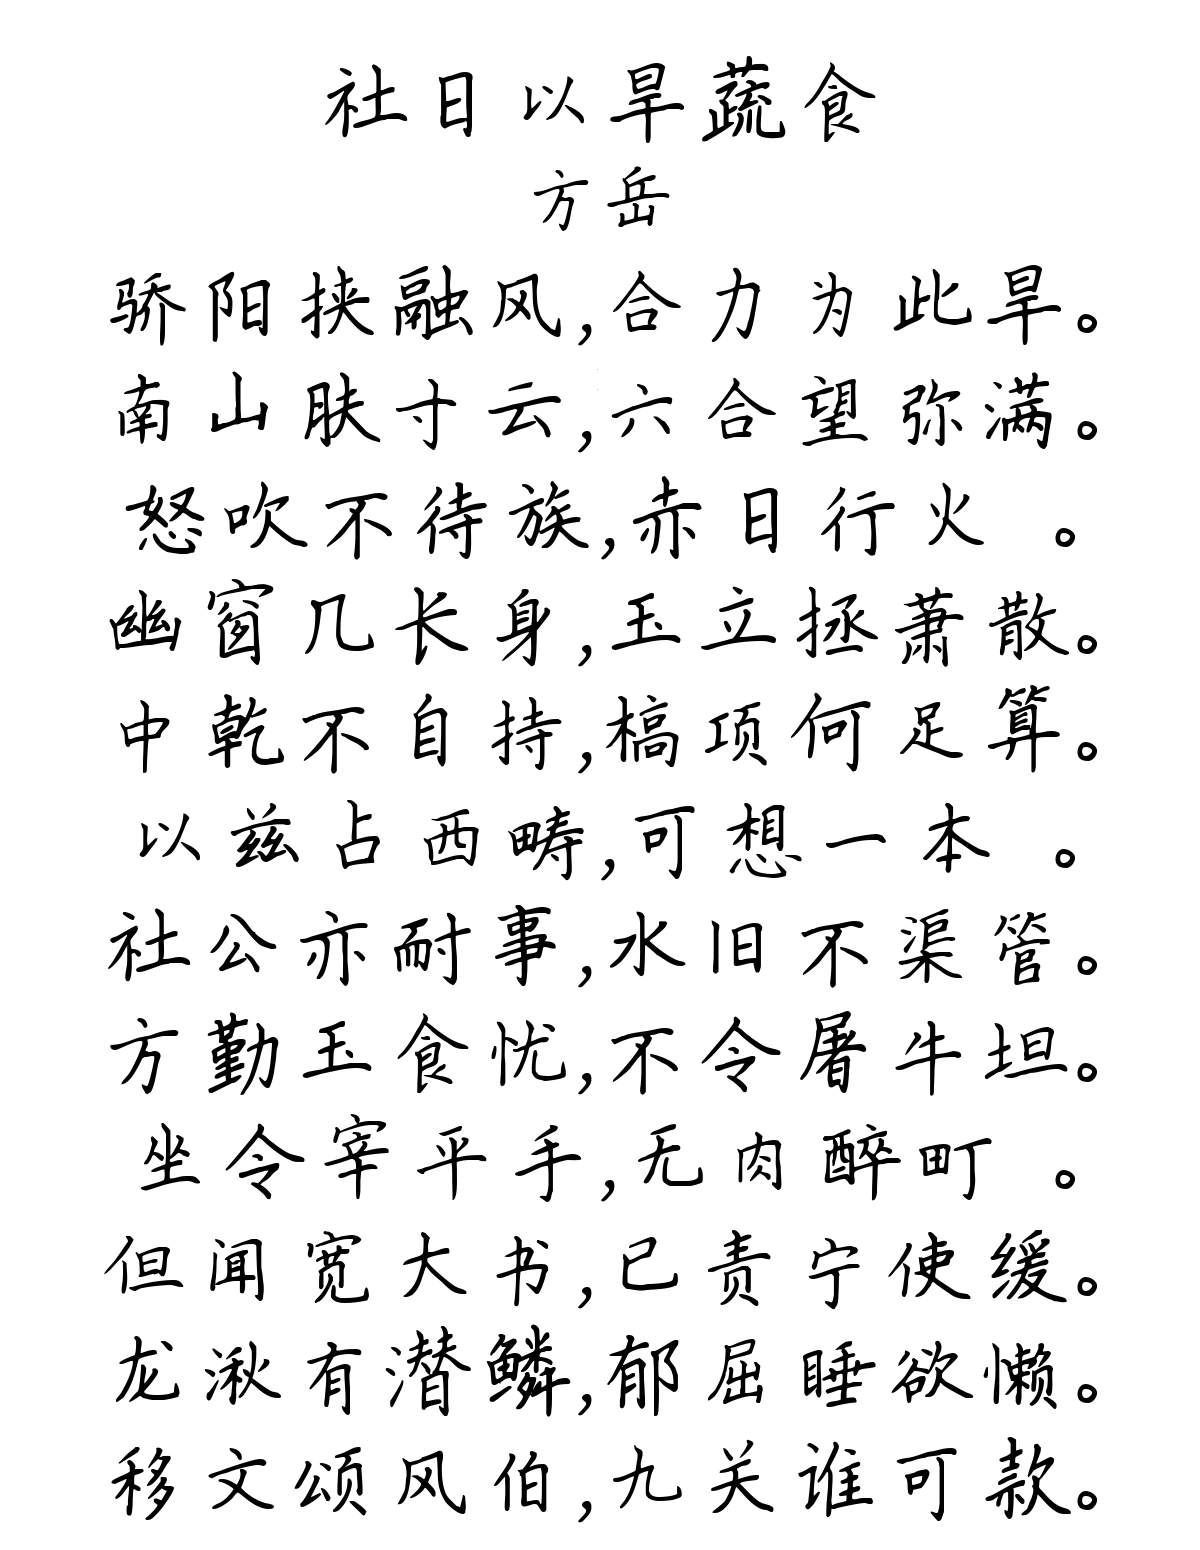 社日以旱蔬食
方岳
骄阳挟融风,合力为此旱。
南山肤寸云,六合望弥满。
怒吹不待族,赤日行火 。
幽窗几长身,玉立拯萧散。
中乾不自持,槁项何足算。
以兹占西畴,可想一本 。
社公亦耐事,水旧不渠管。
方勤玉食忧,不令屠牛坦。
坐令宰平手,无肉醉町 。
但闻宽大书,已责宁使缓。
龙湫有潜鳞,郁屈睡欲懒。
移文颂风伯,九关谁可款。